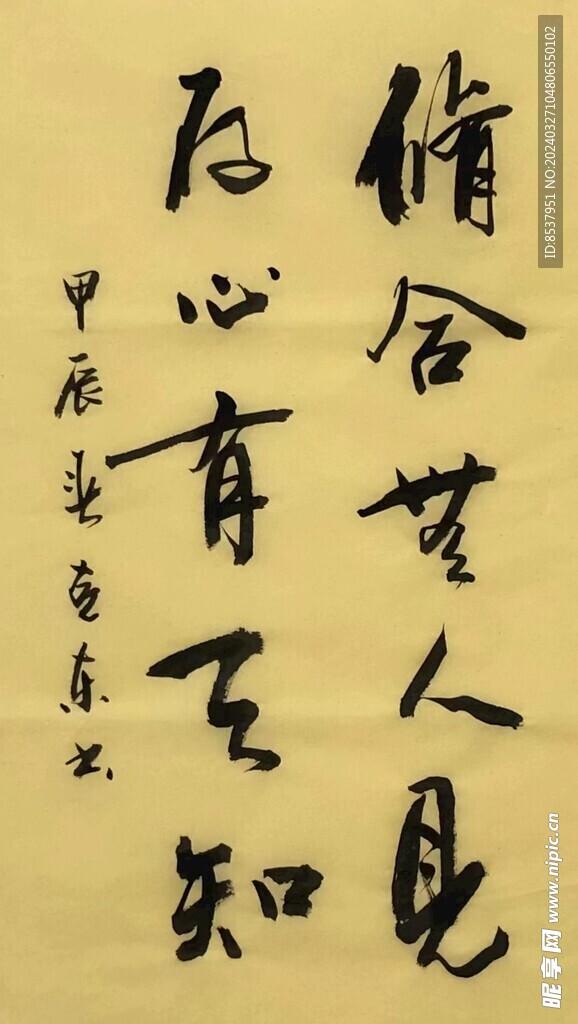 脩合無人見
存心有天知
甲辰 克东书
ID:8537951 NO:20240327104806550102
昵享网 www.nipic.cn